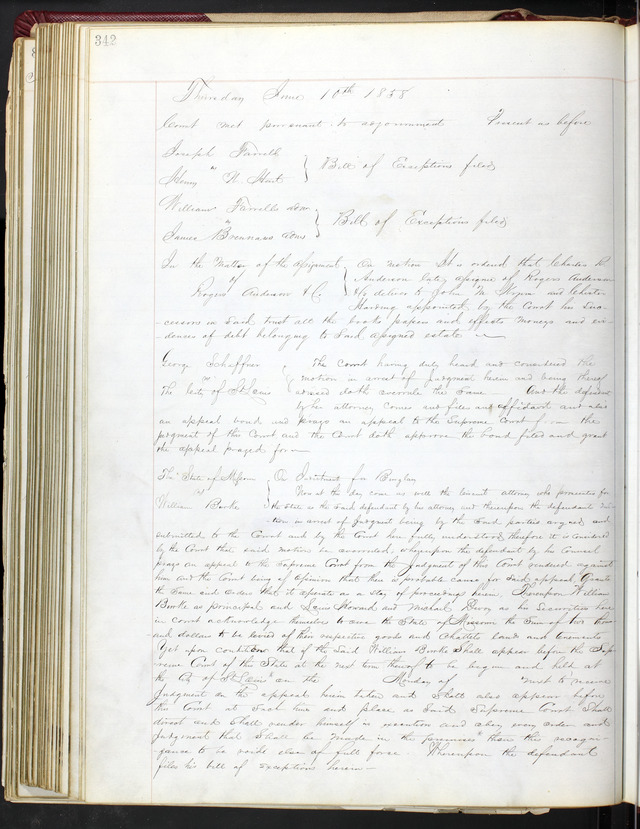 342
Thursday June 10th 1858
Court met persuant to adjournment Present as before
Joseph Farrell
vs
Henry W. Hart } Bill of Exceptions filed
William Farrells adm
vs
James Brennans adm } Bill of Exceptions filed
In the Matter of the Assignment } On motion It is ordered that Charles R.
of Anderson late assignee of Rogers Anderson
Rogers Anderson & C. & Co deliver to John M. Wimer and Charles
Harding appointed by the Court his Suc-
cessors in Said trust all the books papers and effects moneys and evi-
dences of debt belonging to Said assigned estate
George Scheffner The Court having duly heard and considered the
vs motion in arrest of Judgment herein and being thereof
The City of St Louis advised doth overrule the Same And the defendant
by her attorney comes and files an affidavit and also
an appeal bond and prays an appeal to the Supreme Court from the
judgment of this Court and the Court doth approve the bond filed and grant
the appeal prayed for
The State of Missouri On Indictment for Burglary
vs Now at this day come as well the Circuit attorney who prosecutes for
William Burke the state as the Said defendant by his attorney and thereupon the defendants mo-
tion in arrest of Judgment being by the Said parties argued and
submitted to the Court and by the Court here fully understood, therefore it is considered
by the Court that said motion be overruled, whereupon the defendant by his Counsel
prays an appeal to the Supreme Court from the Judgment of this Court rendered against
him and the Court being of opinion that there is probable cause for said appeal Grants
the same and orders that it operate as a stay of proceedings herein. Thereupon William
Burke as principal and Louis Howard and Michael as his Securities here
in court acknowledge themselves to owe the State of Missouri the Sum of two thous-
and dollars to be levied of their respective goods and Chattels Lands and tenements
Yet upon condition that if the Said William Burke Shall appear before the Sup-
reme Court of the State at the next term thereof to be begun and held at
the City of St Louis on the Monday of next to receive
Judgment on the appeal herein taken and Shall also appear before
this Court at Such time and place as Said Supreme Court Shall
direct and Shall render himself in execution and obey every order and
Judgement that Shall be made in the premises then this recogni-
zance to be void else of full force Whereupon the defendant
files his bill of exceptions herein